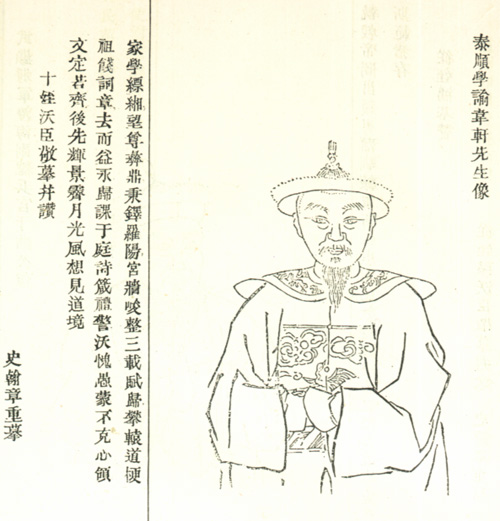 泰順學諭葦軒先生像
家學縹緗望尊彝鼎秉鐸羅陽宮牆峻整三載賦歸攀轅道梗
祖餞詞章去而益永歸課于庭詩箴禮警沃愧愚蒙不克心領
文定若齊後先輝景霽月光風想見道境
十姪沃臣敬摹并讚
史翰章重摹